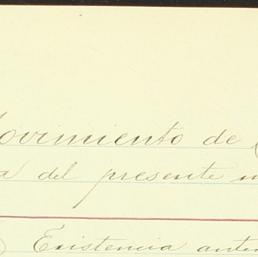 Movimiento de
del presente
Existencia